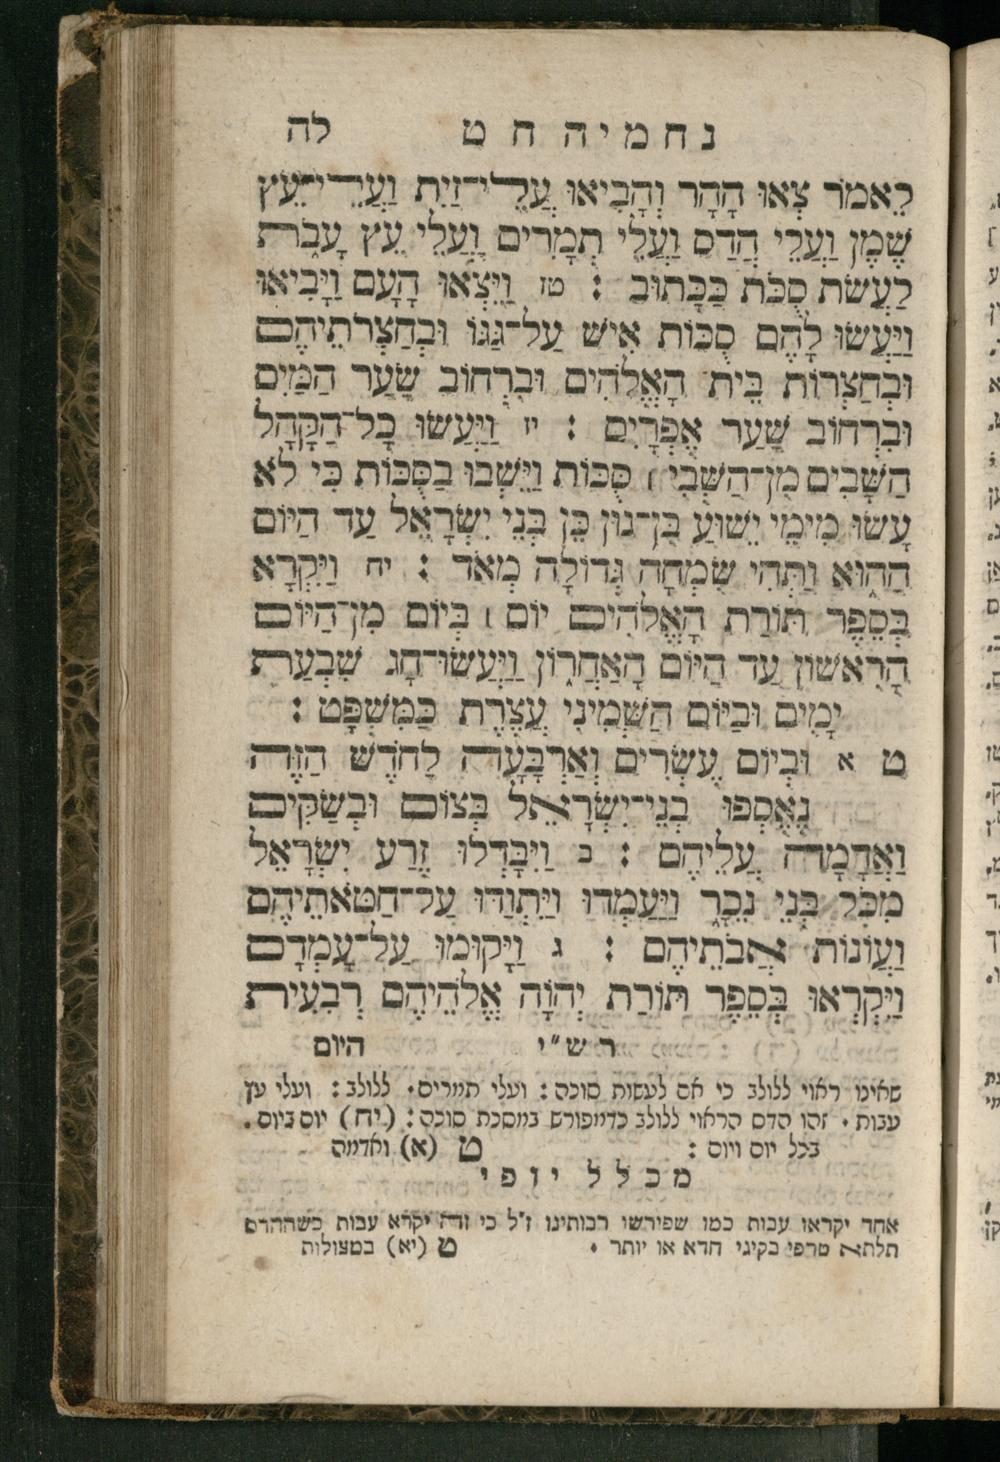 נחמיה ח ט לה
לֵאמֹר צְאוּ הָהָר וְהָבִיאוּ עֲלֵי־זַיִת וַעֲלֵי־עֵץ
שֶׁמֶן וַעֲלֵי הֲדַס וַעֲלֵי תְמָרִים וַעֲלֵי עֵץ עָבֹת
לַעֲשֹׂת סֻכֹּת כַּכָּתוּב : טז וַיֵּצְאוּ הָעָם וַיָּבִיאוּ
וַיַּעֲשׂוּ לָהֶם סֻכּוֹת אִישׁ עַל־גַּגּוֹ וּבְחַצְרֹתֵיהֶם
וּבְחַצְרוֹת בֵּית הָאֱלֹהִים וּבִרְחוֹב שַׁעַר הַמַּיִם
וּבִרְחוֹב שַׁעַר אֶפְרָיִם : יז וַיַּעֲשׂוּ כָל־הַקָּהָל
הַשָּׁבִים מִן־הַשְּׁבִי ׀ סֻכּוֹת וַיֵּשְׁבוּ בַסֻּכּוֹת כִּי לֹא
עָשׂוּ מִימֵי יֵשׁוּעַ בִּן־נוּן כֵּן בְּנֵי יִשְׂרָאֵל עַד הַיּוֹם
הַהוּא וַתְּהִי שִׂמְחָה גְּדוֹלָה מְאֹד : יח וַיִּקְרָא
בְּסֵפֶר תּוֹרַת הָאֱלֹהִים יוֹם ׀ בְּיוֹם מִן־הַיּוֹם
הָרִאשׁוֹן עַד הַיּוֹם הָאַחֲרוֹן וַיַּעֲשׂוּ־חָג שִׁבְעַת
יָמִים וּבַיּוֹם הַשְּׁמִינִי עֲצֶרֶת כַּמִּשְׁפָּט :
ט א וּבְיוֹם עֶשְׂרִים וְאַרְבָּעָה לַחֹדֶשׁ הַזֶּה
נֶאֶסְפוּ בְנֵי־יִשְׂרָאֵל בְּצוֹם וּבְשַׂקִּים
וַאֲדָמָה עֲלֵיהֶם : ב וַיִּבָּדְלוּ זֶרַע יִשְׂרָאֵל
מִכֹּל בְּנֵי נֵכָר וַיַּעַמְדוּ וַיִּתְוַדּוּ עַל־חַטֹּאתֵיהֶם
וַעֲוֹנוֹת אֲבֹתֵיהֶם : ג וַיָּקוּמוּ עַל־עָמְדָם
וַיִּקְרְאוּ בְּסֵפֶר תּוֹרַת יְהוָֹה אֱלֹהֵיהֶם רְבִעִית
רש״י היום
שאינו ראוי ללולב כי אם לעשות סוכה : ועלי תמרים · ללולב : ועלי עץ
עבות · זהו הדס הראוי ללולב כדמפורש במסכת סוכה : (יח) יום ביום .
בכל יום ויום : ט (א) ואדמה
מכלל יופי
אחד יקראו עבות כמו שפירשו רבותינו ז״ל כי זה יקרא עבות כשההדס
תלתא טרפי בקיני חדא או יותר · ט (יא) במצולות